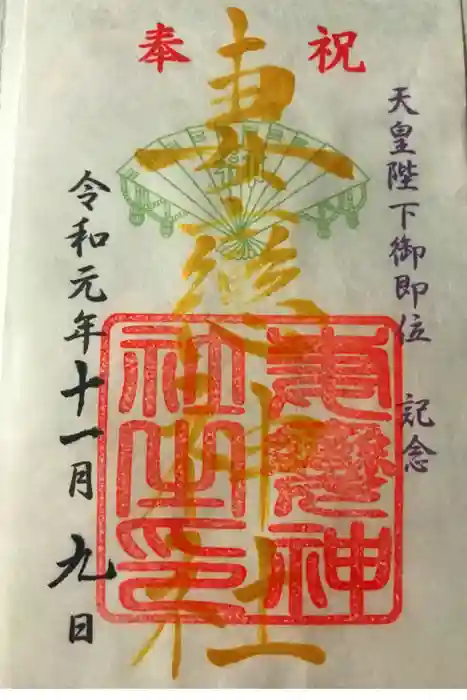 奉祝
天皇陛下御即位 記念
妻戀神社
妻戀神
社之印
令和元年十一月九日